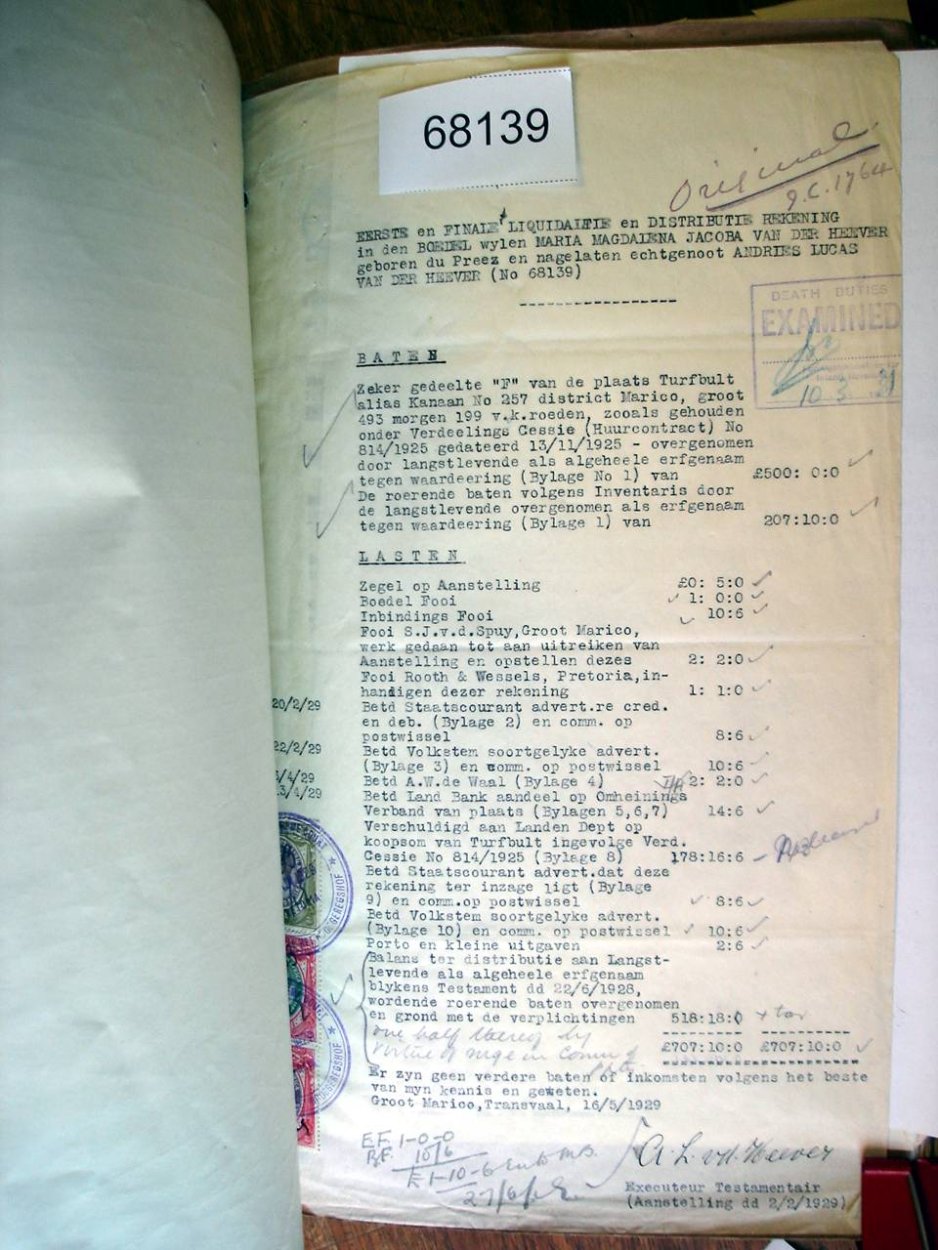 68139
Original
9.C.1764
EERSTE en FINALE LIQUIDALTIE en DISTRIBUTIE REKENING
in den BOEDEL wylen MARIA MAGDALENA JACOBA VAN DER HEEVER
geboren du Preez en nagelaten echtgenoot ANDRIES LUCAS
VAN DER HEEVER (No 68139)
DEATH DUTIES
EXAMINED
10 3 31
BATEN
Zeker gedeelte "F" van de plaats Turfbult
alias Kanaan No 257 district Marico, groot
493 morgen 199 v.k.roeden, zooals gehouden
onder Verdeelings Cessie (Huurcontract) No
814/1925 gedateerd 13/11/1925 - overgenomen
door langstlevende als algeheele erfgenaam
tegen waardeering (Bylage No 1) van £500: 0:0
De roerende baten volgens Inventaris door
de langstlevende overgenomen als erfgenaam
tegen waardeering (Bylage 1) van 207:10:0
LASTEN
Zegel op Aanstelling £0: 5:0
Boedel Fooi 1: 0:0
Inbindings Fooi 10:6
Fooi S.J.v.d.Spuy,Groot Marico,
werk gedaan tot aan uitreiken van
Aanstelling en opstellen dezes 2: 2:0
Fooi Rooth & Wessels, Pretoria,in-
handigen dezer rekening 1: 1:0
20/2/29 Betd Staatscourant advert.re cred.
en deb. (Bylage 2) en comm. op
postwissel 8:6
22/2/29 Betd Volkstem soortgelyke advert.
(Bylage 3) en comm. op postwissel 10:6
4/4/29 Betd A.W.de Waal (Bylage 4) 2: 2:0
3/4/29 Betd Land Bank aandeel op Omheinings
Verband van plaats (Bylagen 5,6,7) 14:6
Verschuldigd aan Landen Dept op
koopsom van Turfbult ingevolge Verd.
Cessie No 814/1925 (Bylage 8) 178:16:6
Betd Staatscourant advert.dat deze
rekening ter inzage ligt (Bylage
9) en comm.op postwissel 8:6
Betd Volkstem soortgelyke advert.
(Bylage 10) en comm. op postwissel 10:6
Porto en kleine uitgaven 2:6
Balans ter distributie aan Langst-
levende als algeheele erfgenaam
blykens Testament dd 22/6/1928,
wordende roerende baten overgenomen
en grond met de verplichtingen 518:18:0
one half thereof by
virtue of mge in Comm of
£707:10:0 £707:10:0
Er zyn geen verdere baten of inkomsten volgens het beste
van myn kennis en geweten.
Groot Marico,Transvaal, 16/5/1929
E.F. 1-0-0
B.F. 10/6
£1-10-6
A. L. vd. Heever
Executeur Testamentair
(Aanstelling dd 2/2/1929)